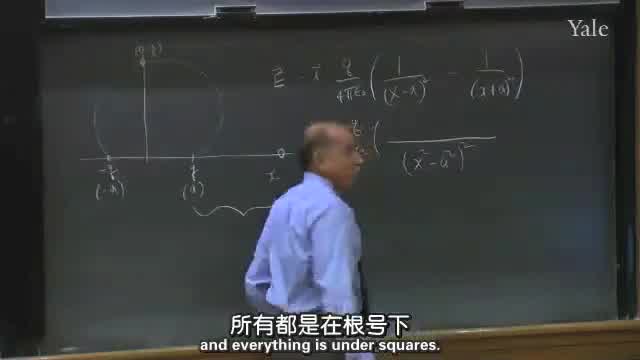 Yale
(0, y)
E = i q/4πε₀ ( 1/(x-a)² - 1/(x+a)² )
(x² - a²)²
-q q x
(-a) (a)
所有都是在根号下
and everything is under squares.